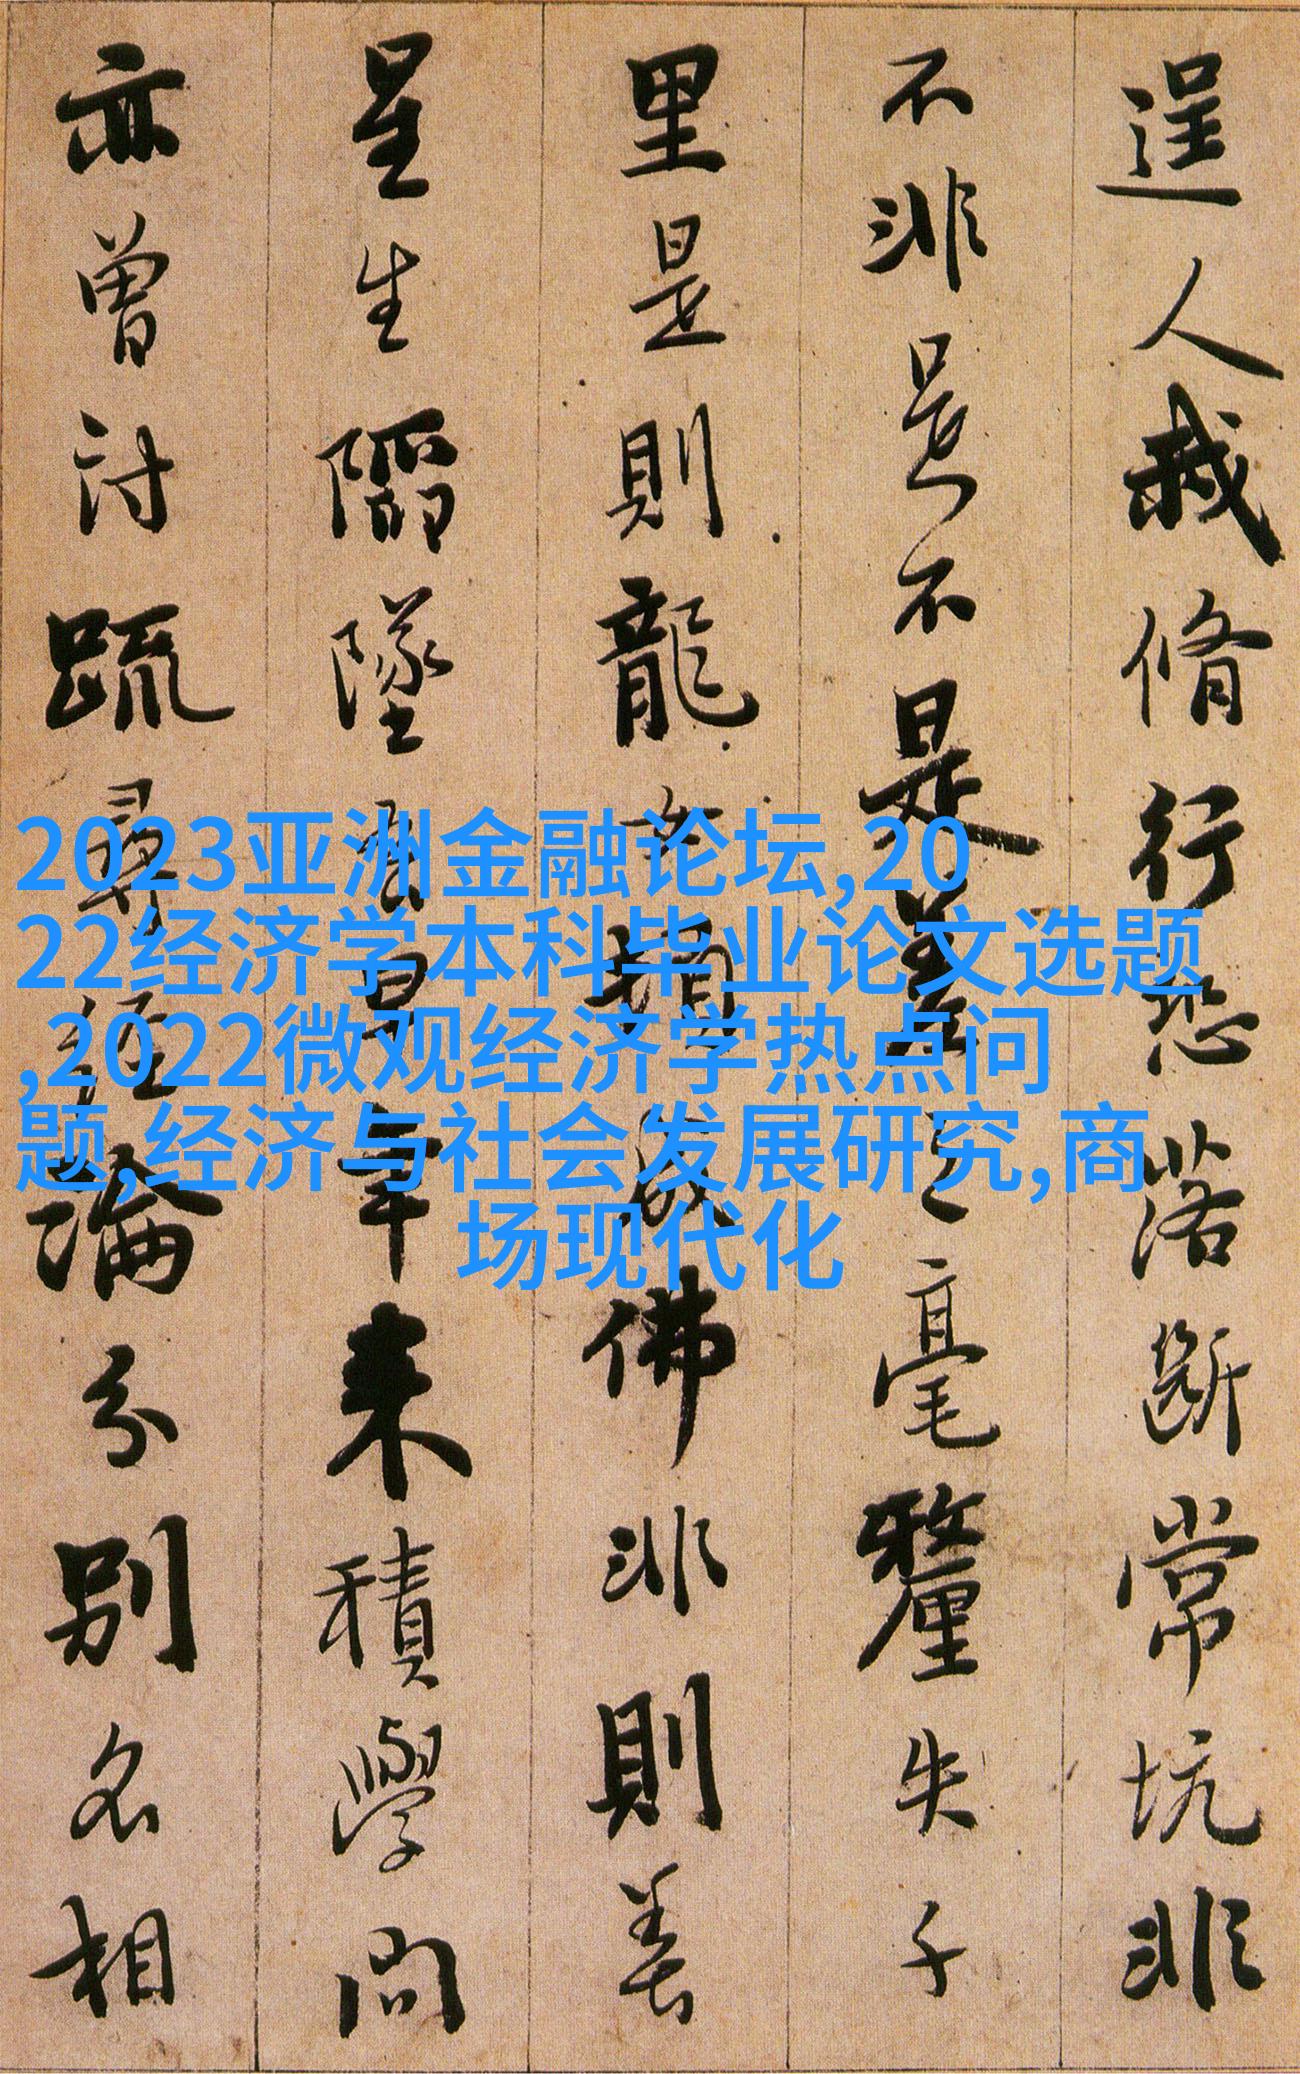 逞人我脩行恐落斷常坑非
不非是不是差之毫釐失千
里是則龍女頓成佛非則善
星生陷墜吾早年来積學問
亦曾討疏尋経論分別名相
2023亚洲金融论坛,20
22经济学本科毕业论文选题
,2022微观经济学热点问
题,经济与社会发展研究,商
场现代化